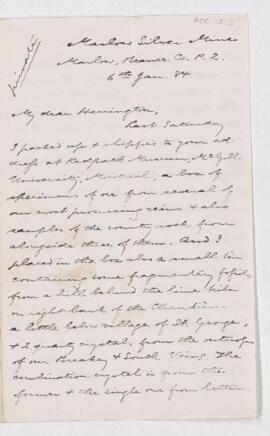 ACC 1010
private
Marlow Silver Mine
Marlow, Beauce Co. P. Q.
6th Jan. 84
My dear Harrington,
Last Saturday
I packed up & shipped to your ad-
dress at Redpath Museum, McGill
University, Montreal, a box of
specimens of ore from several of
our most promising veins & also
samples of the country rock from
alongside three of them. And I
placed in the box also a small tin
container some fragmentary fossils
from a hill behind the lime kiln
on right bank of the Chaudière
a little below village of St. George,
& 2 quartz crystals from the outcrops
of our Breakey & South Veins. The
combination crystal is from the
former & the single one from latter.